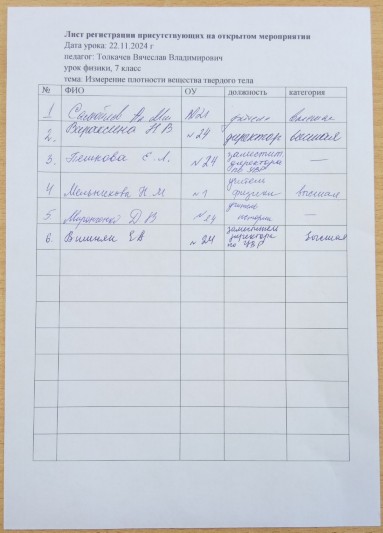 Лист регистрации присутствующих на открытом мероприятии
Дата урока: 22.11.2024 г
педагог: Толкачев Вячеслав Владимирович
урок физики, 7 класс
тема: Измерение плотности вещества твердого тела
№ ФИО ОУ должность категория
1 №21 высшая
2. Вараксина Н В №24 директор высшая
3. Пешкова Е. Л. №24 заместит. директора по —
4 Мельникова Н. М №1 учитель физики высшая
5 Д В №24 учитель истории —
6. Вишняк Е В №24 заместител директора по УВР высшая